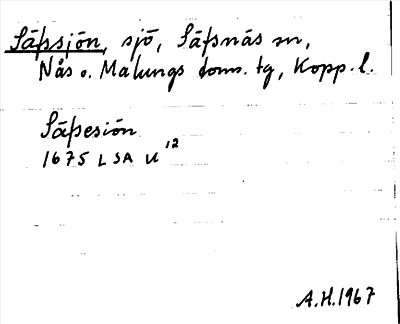 Säfssjön, sjö, Säfsnäs sn,
Nås o. Malungs doms. tg, Kopp. l.
Säfsesiön
1675 LSA U 12
A.H. 1967